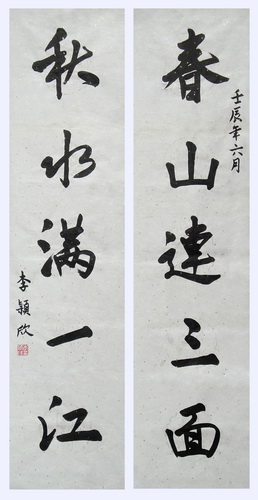 春山連三面
壬辰年六月
秋水滿一江
李穎欣